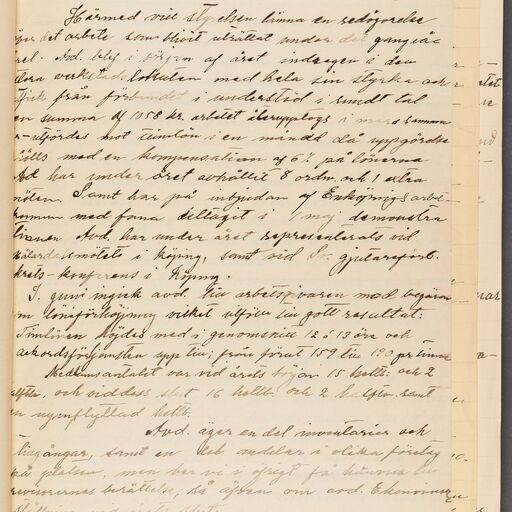 Härmed vill styrelsen lämna en redogörelse
över det arbete som blivit uträttat under det gångna å-
ret. Avd. blef i början af året indragen i den
stora verkstadslokouten med hela sin styrka och
fick från förbundet i understöd i rundt tal
en summa af 1058 kr. arbetet återupptogs i mars samma
utfördes mot timlön i en månad då uppgörelse
hölls med en kompensation af 6% på lönerna
Avd har under året avhållit 8 ordn. och 1 extra
möten. Samt har på inbjudan af Enköpings arbet.
kommun med fana deltagit i 1 maj demonstra
tionen Avd. har under året representerats vid
mötet i Köping, samt vid gjutareförb.
krets-konferens i Köping.
I juni ingick avd. till arbetsgivaren med begäran
om löneförhöjning vilket utföll till gott resultat.
Timlönen höjdes med i genomsnitt 12 á 13 öre och
ackordsförtjänsten upp till, från förut 159 till 190 pr timme
Medlemsantalet var vid årets början 15 helb. och 2
halfbet. och vid dess slut 16 helb. och 2 halfbet. samt
en nyinflyttad helb.
Avd. äger en del inventarier och
tillgångar, samt en del andelar i olika företag
på platsen, men ber vi i öfrigt få hänvisa till
revisorernas berättelse, så även om avd. Ekonomiska